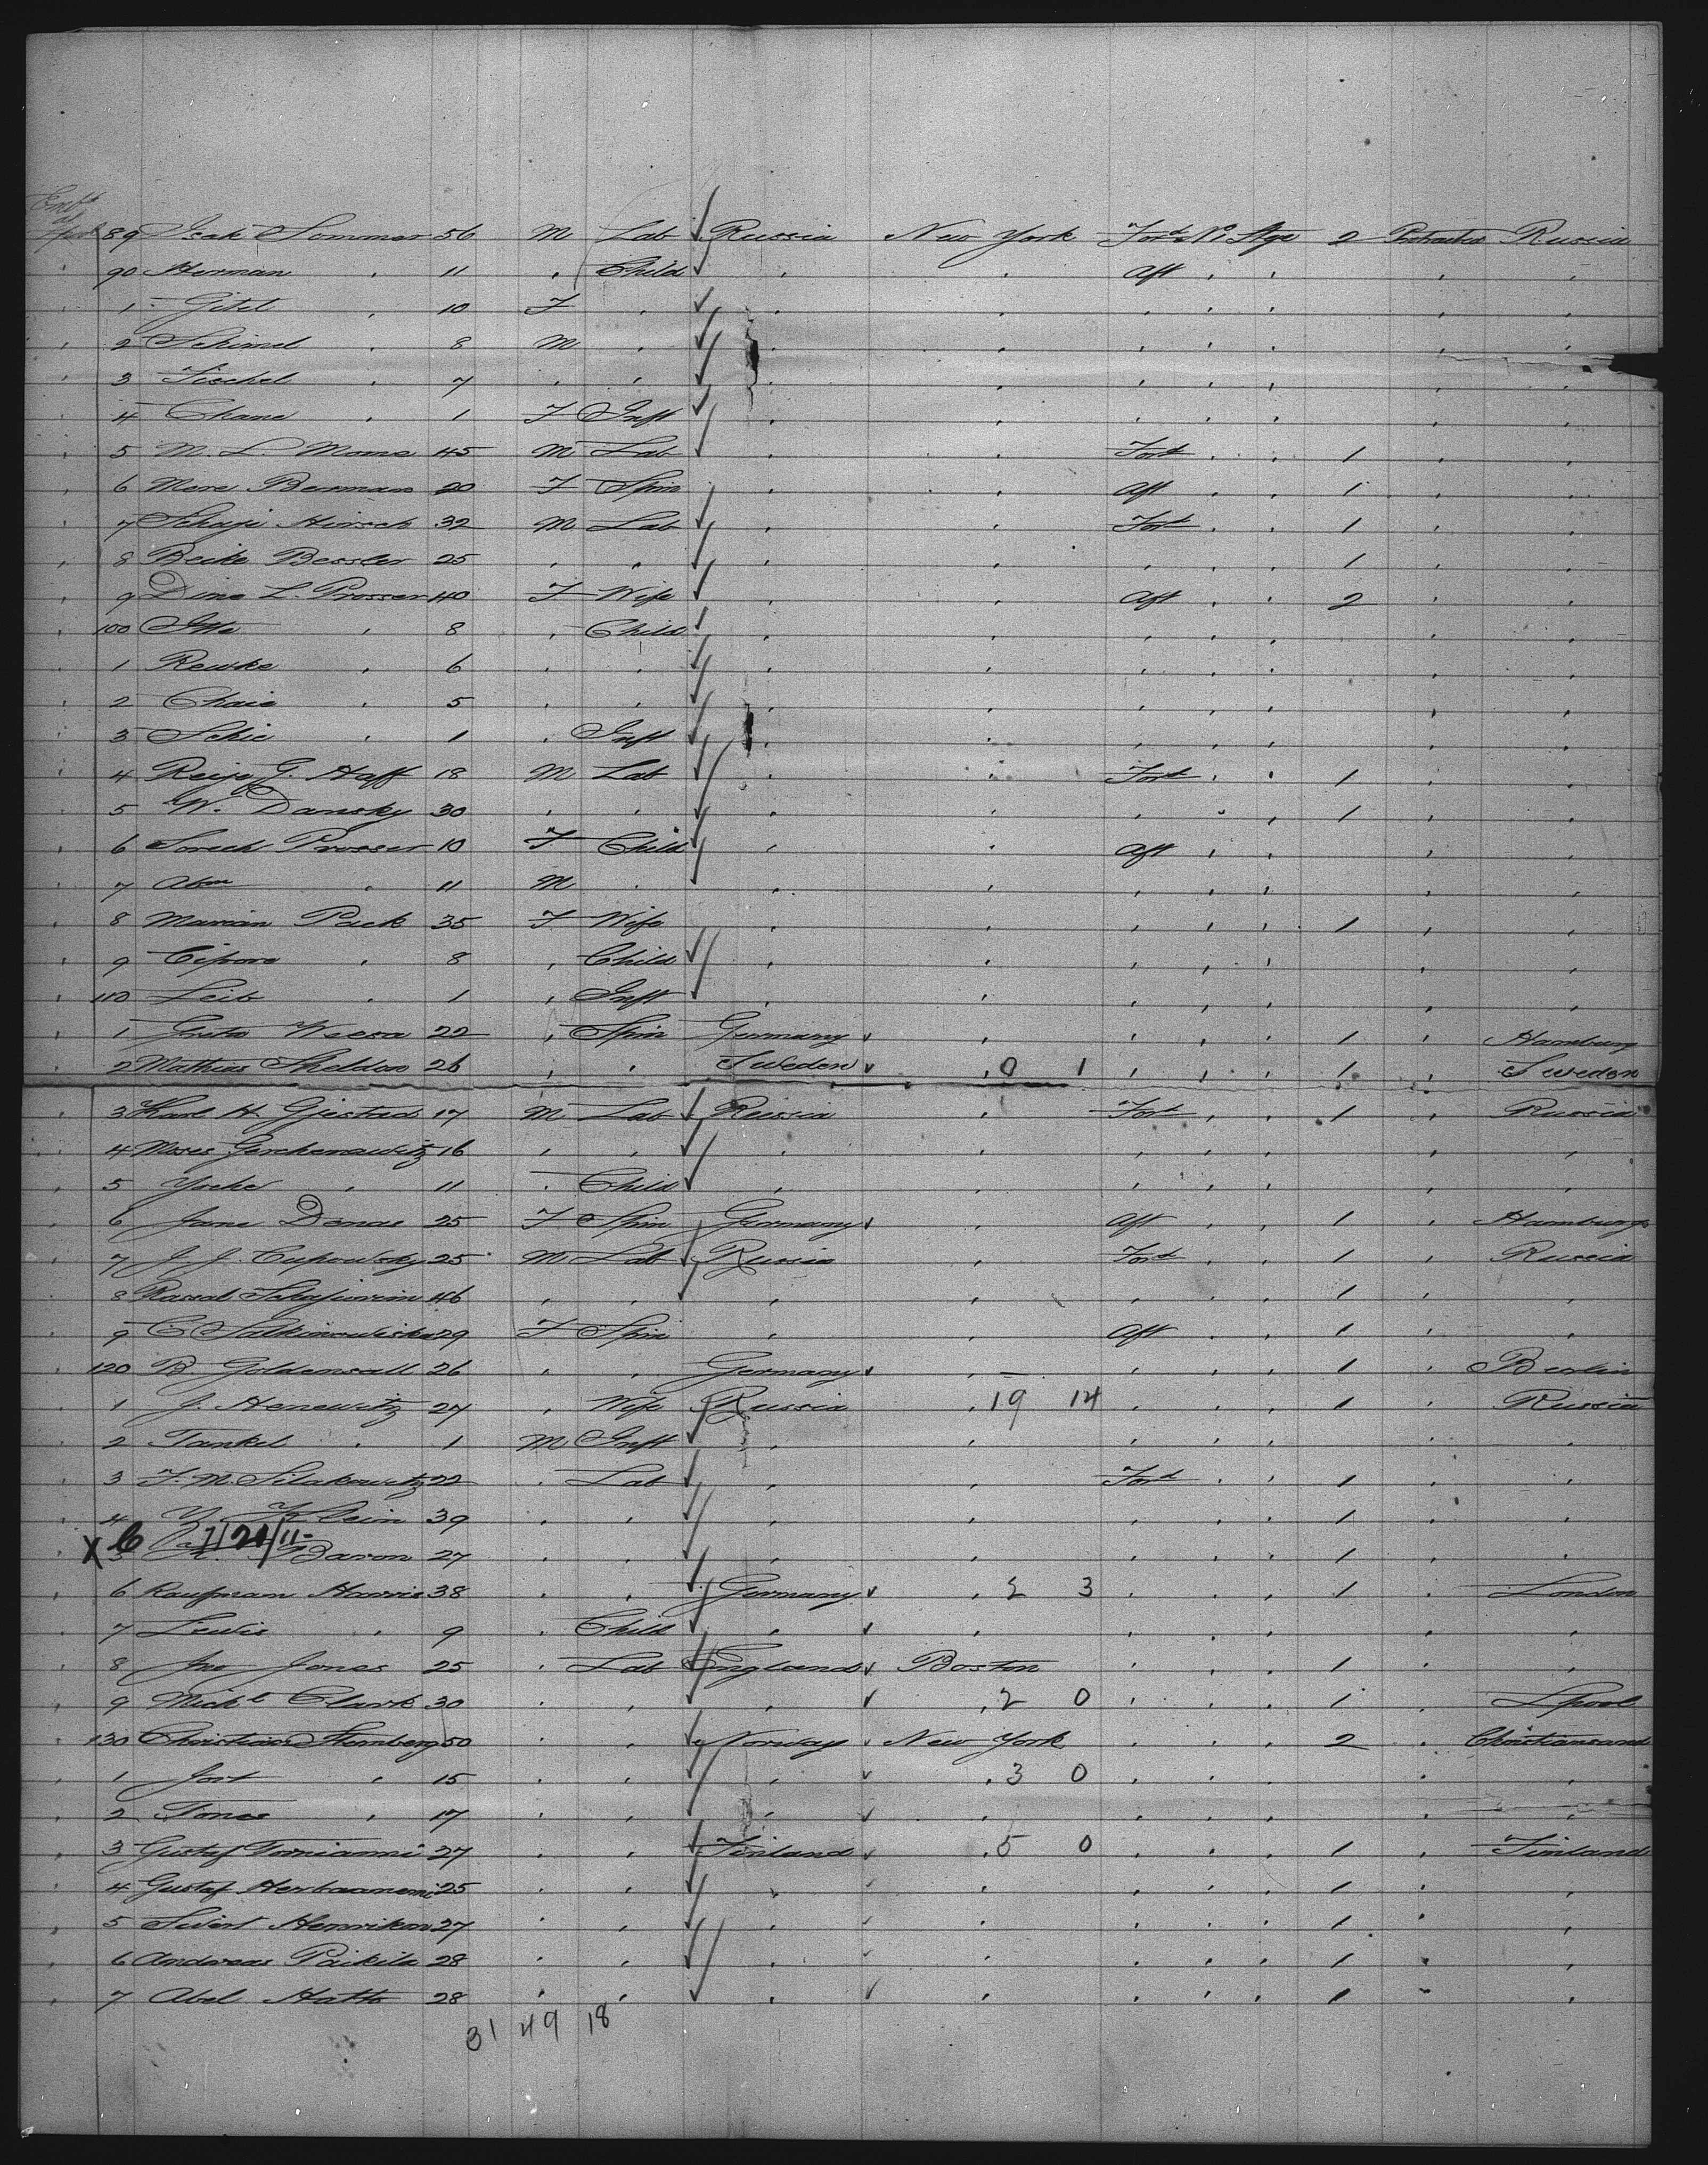 Emb^d
at
89 Isak Sommer 56 M Lab Russia New York Ford N° Stge 2 Protracted Russia
90 Herman " 11 " Child " " Aft " " " "
1 Gitel " 10 F " " " " " " " "
2 Schimel " 8 M " " " " " " " "
3 Fischel " 7 " " " " " " " " "
4 Chane " 1 F Inft " " " " " " "
5 M. L. Mome 45 M Lab " " Ford " " 1 " "
6 Mere Berman 20 F Spin " " Aft " " 1 " "
7 Schaji Hirsch 32 M Lab " " Ford " " 1 " "
8 Beike Bessler 25 " " " " " " " 1 " "
9 Dine L. Prosser 40 F Wife " " Aft " " 2 " "
100 Itte " 8 " Child " " " " " " "
1 Rewke " 6 " " " " " " " " "
2 Chaie " 5 " " " " " " " " "
3 Schie " 1 " Inft " " " " " " "
4 Reije G. Haff 18 M Lab " " Ford " " 1 " "
5 W. Dansky 30 " " " " " " " 1 " "
6 Sorech Prosser 10 F Child " " Aft " " " "
7 Abm " 11 M " " " " " " " "
8 Marian Pack 35 F Wife " " " " " 1 " "
9 Cipore " 8 " Child " " " " " " "
110 Leib " 1 " Inft " " " " " " "
1 22 " Spin Germany " " " " 1 " Hamburg
2 Mathias Sheldon 26 " " Sweden " 0 1 " " " 1 " Sweden
3 Karl H. Gjestad 17 M Lab Russia " Ford " " 1 " Russia
4 Moses Gerchenawitz 16 " " " " " " " " "
5 Yoche " 11 " Child " " " " " " "
6 Jane Denas 25 F Spin Germany " Aft " " 1 " Hamburg
7 J. J. Cupowsky 25 M Lab Russia " Ford " " 1 " Russia
8 46 " " " " " " " 1 " "
9 29 F Spin " " Aft " " 1 " "
120 B. Goldensall 26 " " Germany " " " " 1 " Berlin
1 J. Henewitz 27 " Wife Russia " 19 14 " " " 1 " Russia
2 Jankel " 1 M Inft " " " " " " "
3 F. M. Silakowitz 22 " Lab " " Ford " " 1 " "
4 Klein 39 " " " " " " " 1 " "
X C 7/21/11-
5 Baron 27 " " " " " " " 1 " "
6 Kaufman Harris 38 " " Germany " 2 3 " " " 1 " London
7 Lewis " 9 " Child " " " " " " "
8 Jno Jones 25 " Lab England Boston " " " 1 " "
9 Mich^l Clark 30 " " " " 2 0 " " " 1 " Lpool
130 Christian Stemberg 50 " " Norway New York " " " 2 " Christiansand
1 Jort " 15 " " " " 3 0 " " " "
2 Tones " 17 " " " " " " " " "
3 Gustaf Tornianni 27 " " Finland " 5 0 " " " 1 " Finland
4 Gustaf Herbaanemi 25 " " " " " " " 1 " "
5 Sivert Henrikson 27 " " " " " " " 1 " "
6 Andreas Paikila 28 " " " " " " " 1 " "
7 Abel Hatto 28 " " " " " " " 1 " "
31 49 18